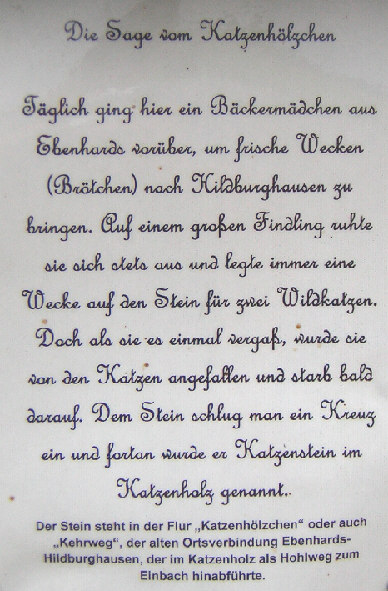 Die Sage vom Katzenhölzchen
Täglich ging hier ein Bäckermädchen aus
Ebenhards vorüber, um frische Wecken
(Brötchen) nach Hildburghausen zu
bringen. Auf einem großen Findling ruhte
sie sich stets aus und legte immer eine
Wecke auf den Stein für zwei Wildkatzen.
Doch als sie es einmal vergaß, wurde sie
von den Katzen angefallen und starb bald
darauf. Dem Stein schlug man ein Kreuz
ein und fortan wurde er Katzenstein im
Katzenholz genannt.
Der Stein steht in der Flur „Katzenhölzchen“ oder auch
„Kehrweg“, der alten Ortsverbindung Ebenhards-
Hildburghausen, der im Katzenholz als Hohlweg zum
Einbach hinabführte.